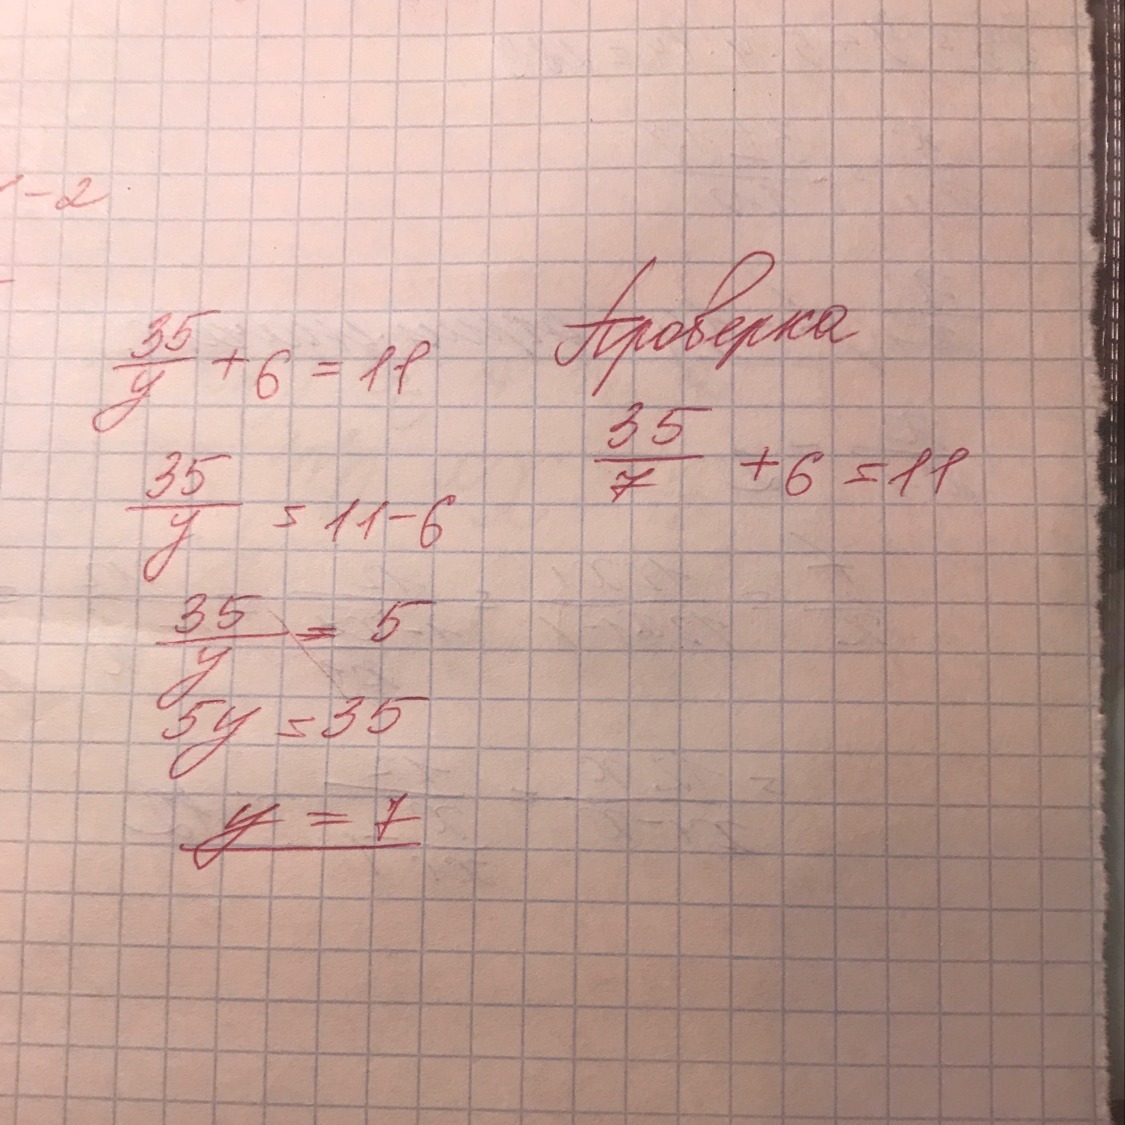 1-2
35/y + 6 = 11
35/y = 11-6
35/y = 5
5y = 35
y = 7
Проверка
35/7 + 6 = 11